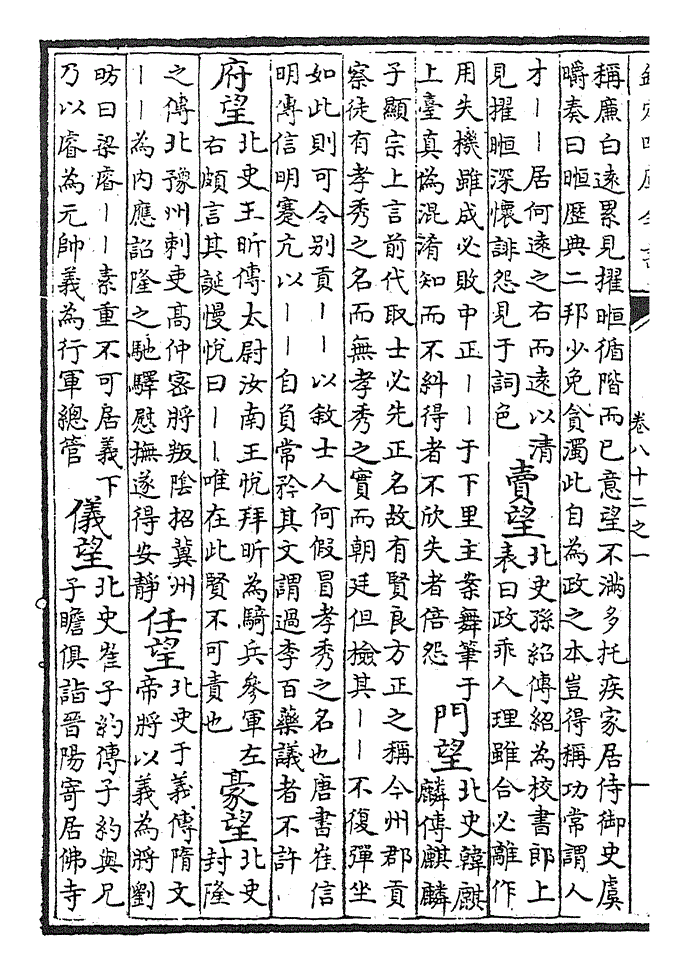 卷八十二之一
稱廉白遠累見擢暅循階而已意望不滿多托疾家居侍御史虞
㬭奏曰暅歷典二邦少免貪濁此自為政之本豈得稱功常謂人
才――居何遠之右而遠以清
見擢暅深懷誹怨見于詞色
賣望
北史孫紹傳紹為校書郎上
表曰政乖人理雖合必離作
用失機雖成必敗中正――于下里主案舞筆于
上臺真偽混淆知而不糾得者不欣失者倍怨
門望
北史韓麒
麟傳麒麟
子顯宗上言前代取士必先正名故有賢良方正之稱今州郡貢
察徒有孝秀之名而無孝秀之實而朝廷但檢其――不復彈坐
如此則可令别貢――以敘士人何假冒孝秀之名也唐書崔信
明傳信明蹇亢以――自負常矜其文謂過李百藥議者不許
府望
北史王昕傳太尉汝南王悅拜昕為騎兵參軍左
右頗言其誕慢悅曰――唯在此賢不可責也
豪望
北史
封隆
之傳北豫州刺史高仲密將叛陰招冀州
――為内應詔隆之馳驛慰撫遂得安靜
任望
北史于義傳隋文
帝將以義為將劉
昉曰梁睿――素重不可居義下
乃以睿為元帥義為行軍總管
儀望
北史崔子約傳子約與兄
子瞻俱詣晉陽寄居佛寺